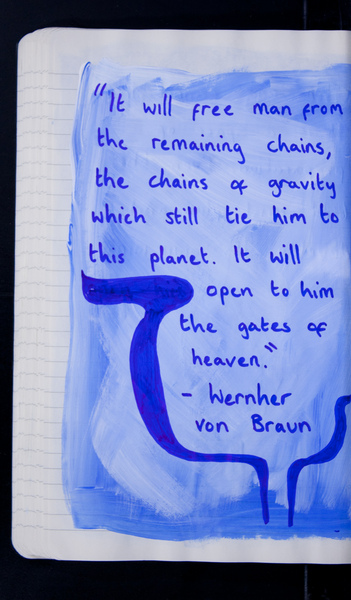 "It will free man from
the remaining chains,
the chains of gravity
which still tie him to
this planet. It will
open to him
the gates of
heaven."
- Wernher
von Braun